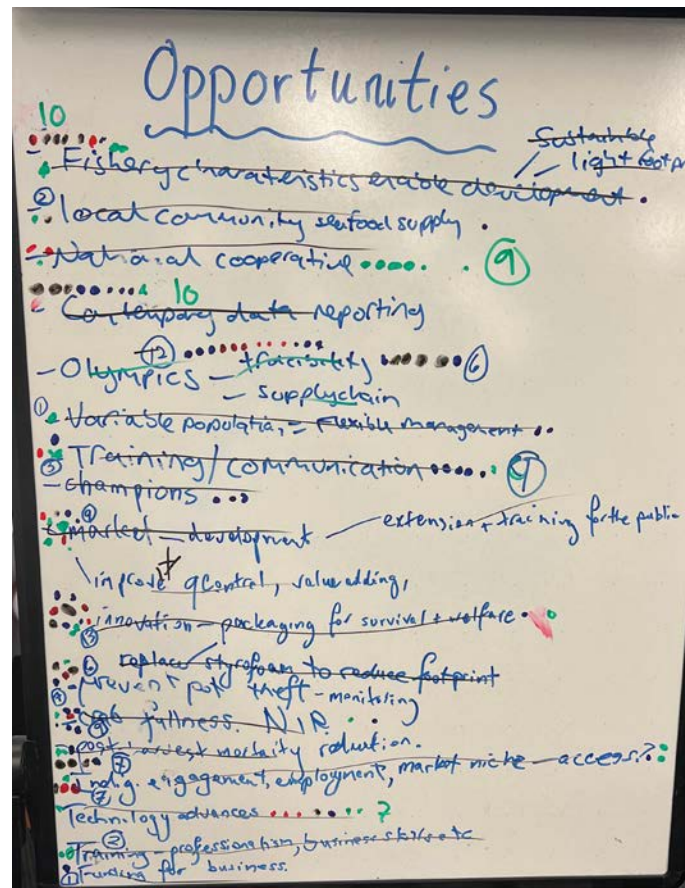 Opportunities
10
Sustainable
- Fishery charateristics enable development. // light footpr
② local community seafood supply
- National cooperative ⑨
10
- Contemporary data reporting
12
- Olympics - tracibility ⑥
- supplychain
① Variable population = flexible management
Training/communication ⑨
- champions
market - development - extension + training for the public
improve qcontrol, value adding,
innovation - packaging for survival + welfare
③
⑥ replace styrofoam to reduce footprint
- Prevent pot theft - monitoring
fullness. NIR
post harvest mortality reduction.
⑦
Indig. engagement, employment, market niche - access?
Technology advances 7
②
Training - professionalism, business skills etc
① Funding for business.